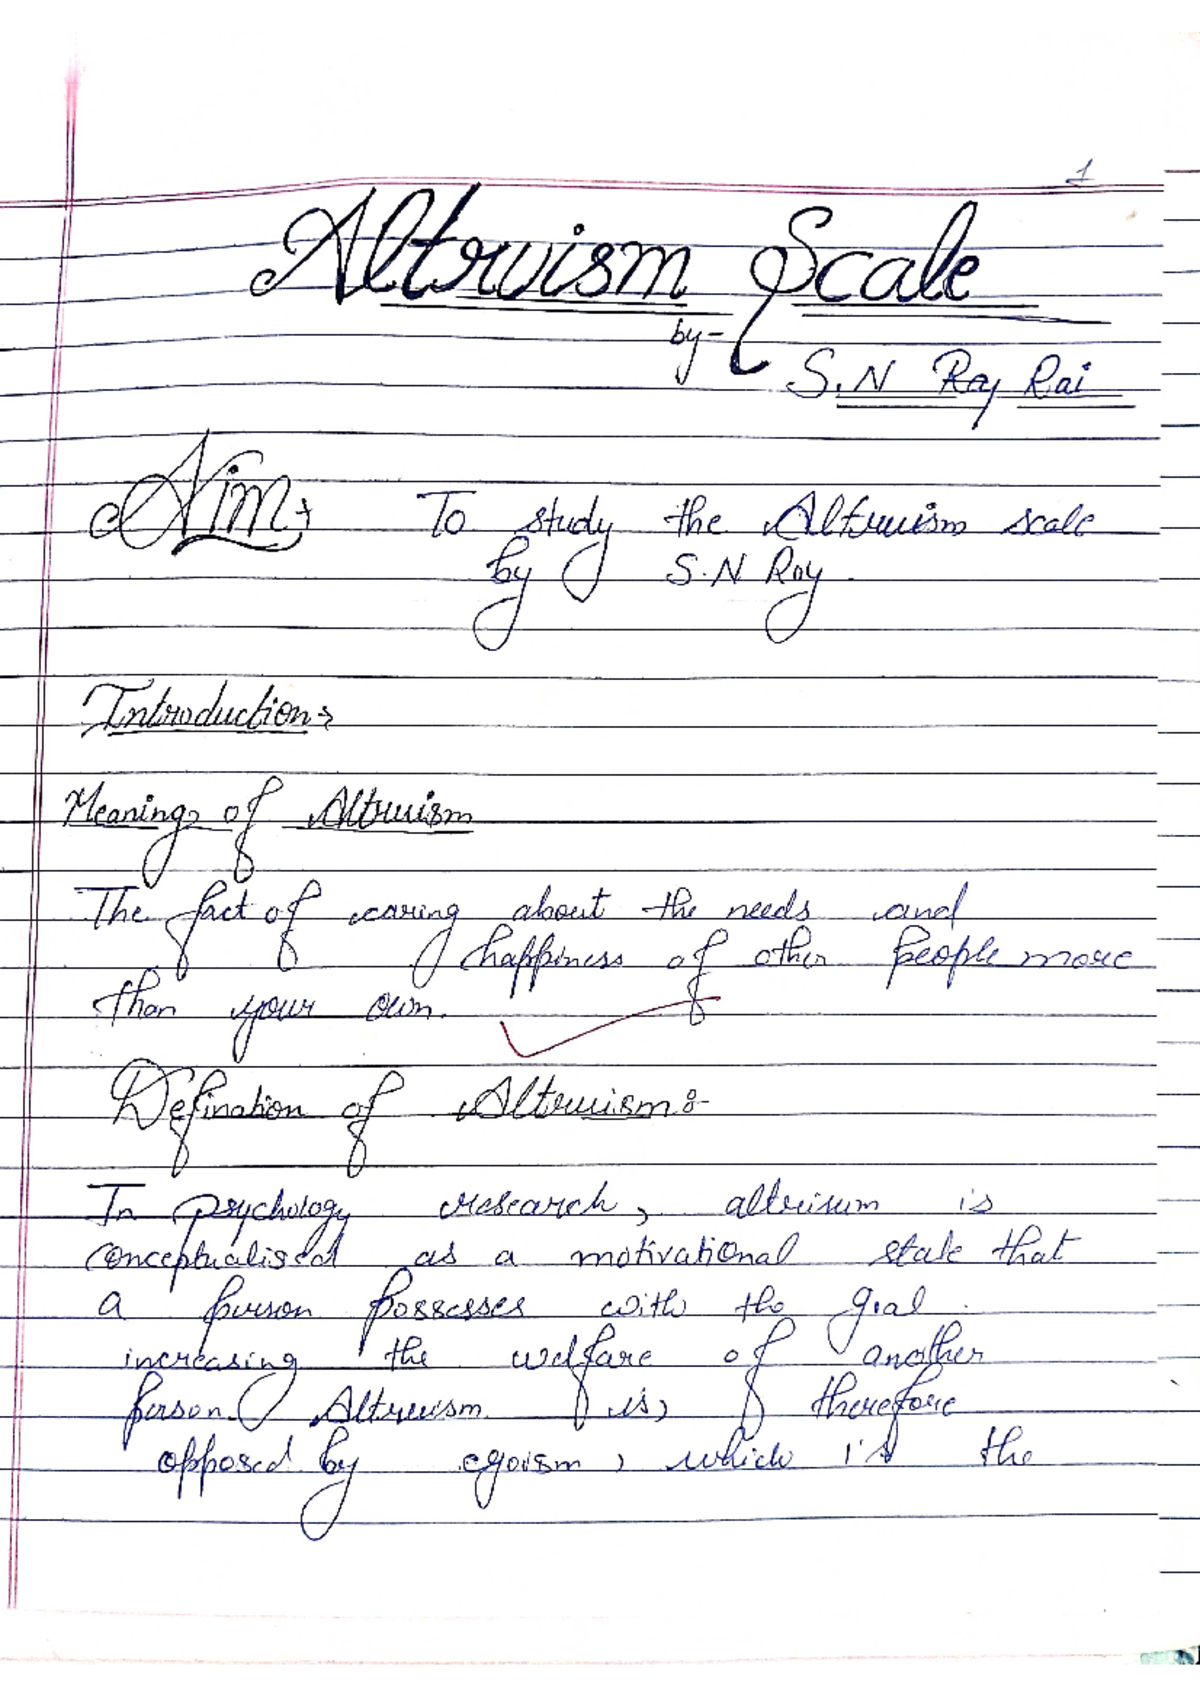 1
Altruism Scale
by-
S.N Ray Rai
Aim:
To study the Altruism scale
by S.N Roy.
Introduction:
Meaning of Altruism
The fact of caring about the needs and
happiness of other people more
than your own.
Defination of Altruism:-
In psychology research, altruisum is
conceptualised as a motivational state that
a person possesses with the goal
increasing the welfare of another
person. Altruism is, therefore
opposed by egoism, which is the